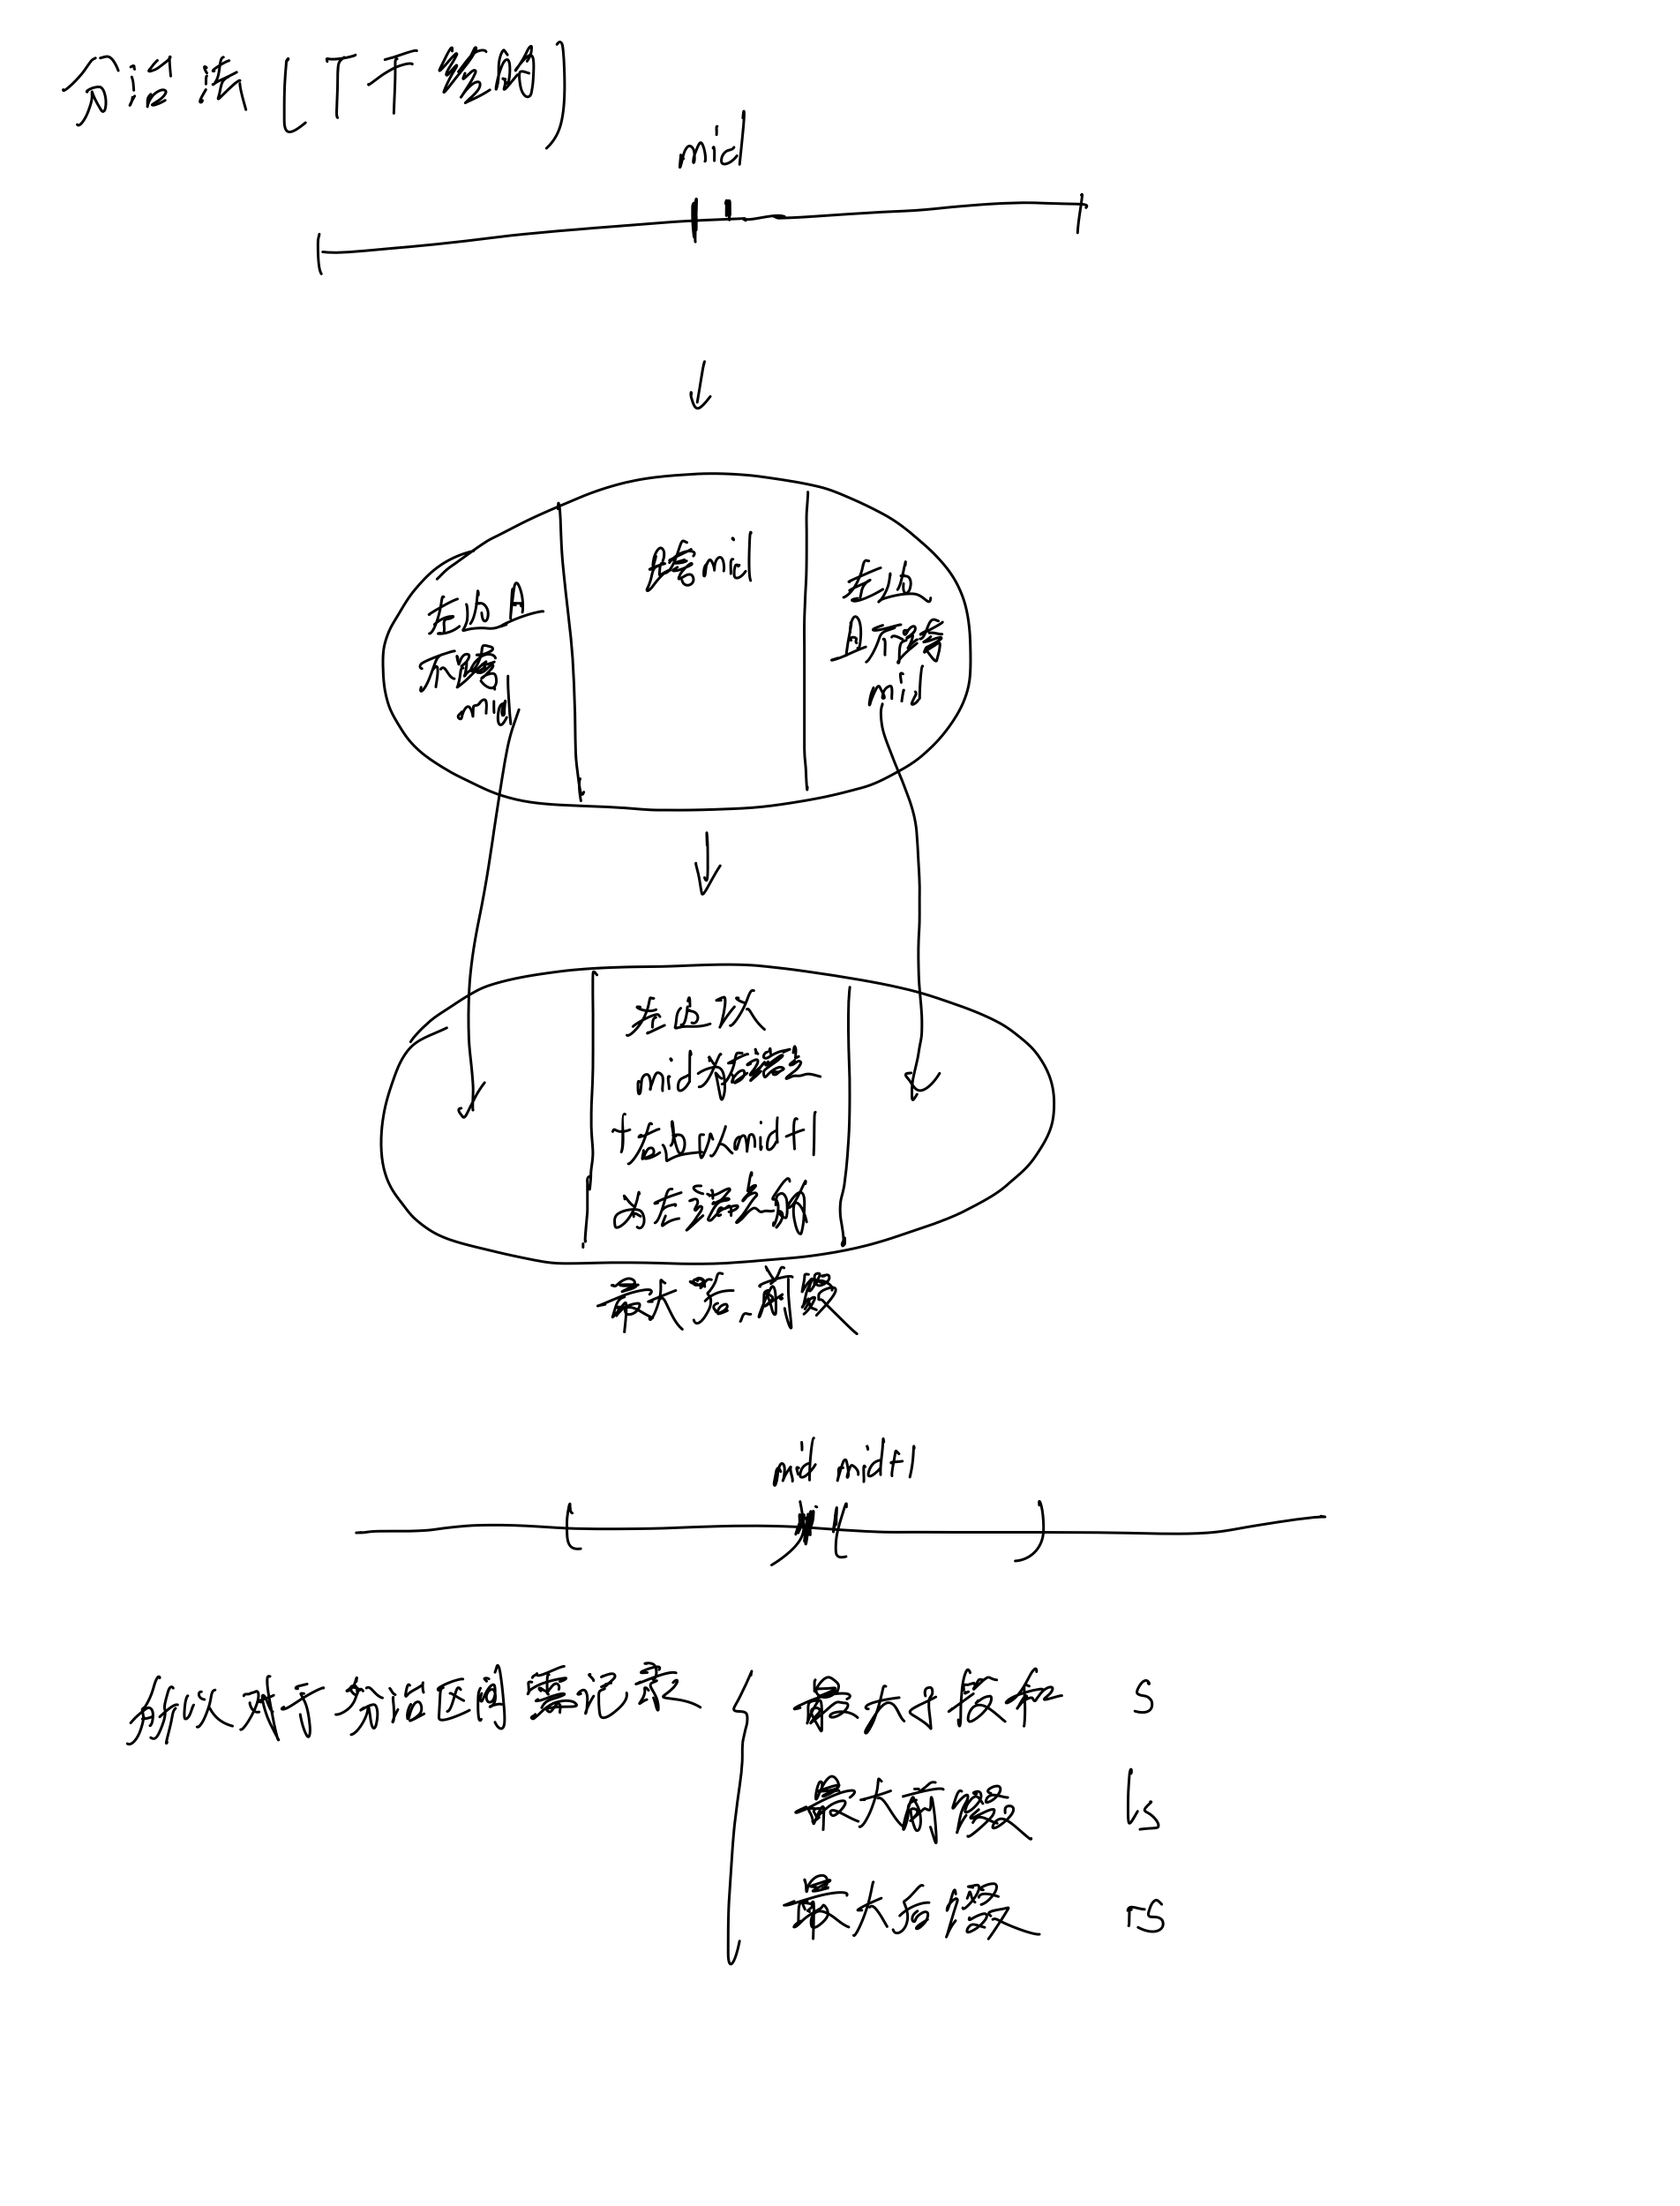 分治法(T干结构)
mid
跨mid
左边且
不跨
mid
左边
且不跨
mid
左边以
mid为右端点
+右边以mid+1
为左端点的
最大后、前缀
mid mid+1
所以对于分治区间需记录
最大子段和 s
最大前缀 ls
最大后缀 rs